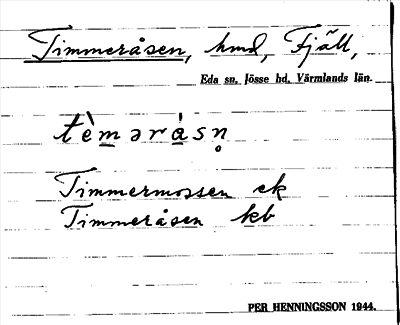 Timmeråsen, hmd, Fjäll,
Eda sn. Jösse hd. Värmlands län.
tèmərásn̥
Timmermossen ek
Timmeråsen kb
PER HENNINGSSON 1944.